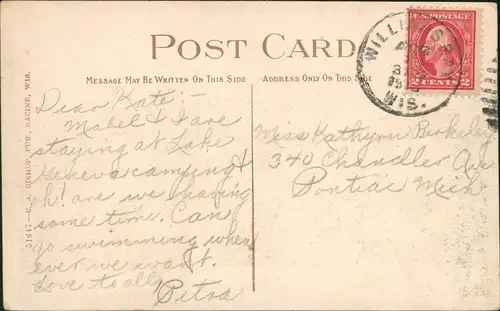 POST CARD
MESSAGE MAY BE WRITTEN ON THIS SIDE
ADDRESS ONLY ON THIS SIDE
U.S. POSTAGE
2 CENTS 2
WILLIAMS BAY
WIS.
Dear Kate:-
Mabel & I are
staying at Lake
Geneva camping &
oh! are we having
some time. Can
go swimming when
ever we want.
Love to all,
Petra
Miss Kathyrn Berkeley
340 Chandler Av
Pontiac Mich
51647-E. A. BISHOP, PUB., RACINE, WIS.